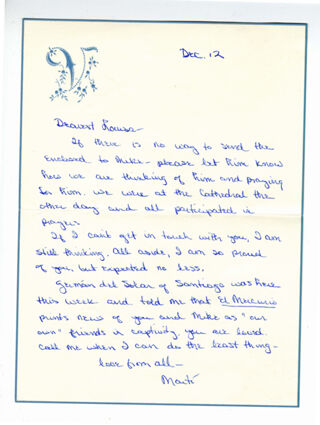 V
Dec. 12
Dearest Louisa-
If there is no way to send the
enclosed to Mike - please let him know
how we are thinking of him and praying
for him. We were at the Cathedral the
other day and all participated in
prayers.
If I can't get in touch with you, I am
still thinking. All aside, I am so proud
of you, but expected no less.
German del Solar of Santiago was here
this week and told me that "El Mercurio
prints news of you and Mike as "our
own" friends in captivity. You are loved.
Call me when I can do the least thing-
love from all-
Marti